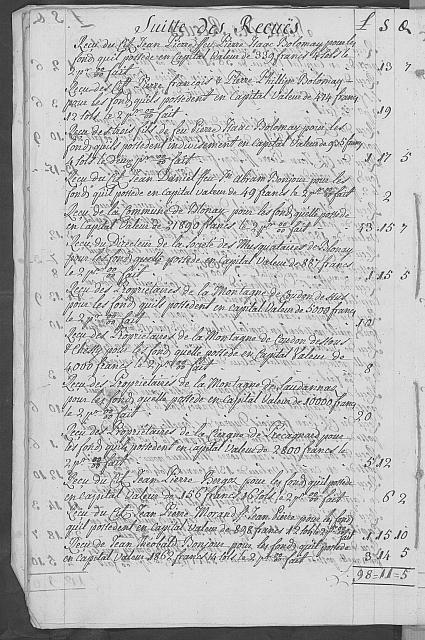 Suitte des Recuës £ S &
Reçu du Cit Jean Pierre ffeu Pierre Isaac Bolomay pour les
fond qu'il possedent en Capital valeur de 339 francs 4 sols le
2 pr 00/00 fait 13 7
Reçu des Cit Pierre françois & Pierre Phillipe Bolomay
pour les fond quils possedent en Capital valeur de 474 francs
12 sols le 2 pr 00/00 fait 19
Reçu des trois fils de feu Pierre Isaac Bolomay pour les
fond quils possedent indivisement en capital valeur de 935 francs
4 sols le deux pr 00/00 fait 1 17 5
Reçu du Cit Jean Daniel ffeu abram Bonjour pour les
fond qu'il possede en capital valeur de 49 francs le 2 pr 00/00 fait 2
Reçu de la Commune de Blonay pour les fond quelle possede
en Capital valeur de 21890 francs le 2 pr 00/00 fait 43 15 7
Reçu du Directeur de la Société des Musquetaires de Blonay
pour les fond quelle possede en Capital valeur de 887 francs
le 2 pr 00/00 fait 1 15 5
Reçu des Proprietaires de la Montagne de Coudon dessus
pour les fond quils possedent en Capital valeur de 5000 francs
le 2 pr 00/00 fait 10
Reçu des Proprietaires de la Montagne de Coudon dessous
pour le fond quelle possede en Capital valeur de
4000 francs le 2 pr 00/00 fait 8
Reçu des Proprietaires de la Montagne de
pour les fond quelle possede en Capital valeur de 10000 francs
le 2 pr 00/00 fait 20
Reçu des Proprietaires de la pour
les fond quils possedent en Capital valeur de 2800 francs le
2 pr 00/00 fait 5 12
Reçu du Cit Jean Pierre pour les fond quil possede
en capital valeur de 156 francs 16 sols le 2 pr 00/00 fait 6 2
Reçu du Cit Jean Pierre Morand ff Jean Pierre pour le fond
quil possedent en capital valeur de 898 francs 12 sols le 2 pr 00/00
fait 1 15 10
Reçu de Jean Bonjour pour les fond quil possede
en Capital valeur 1862 francs 14 sols le 2 pr 00/00 fait 3 14 5
98=11=5